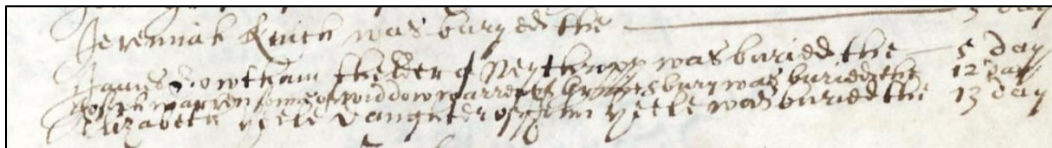 Jeremiah Kuich was buryed the 3 day
Southam the elder of Neythropp was buried the 5 day
Joseph Warren sonne of widdow Warren of Grymsbury was buried the 12 day
Elizabeth Yeele daughter of John Yeele was buried the 13 day